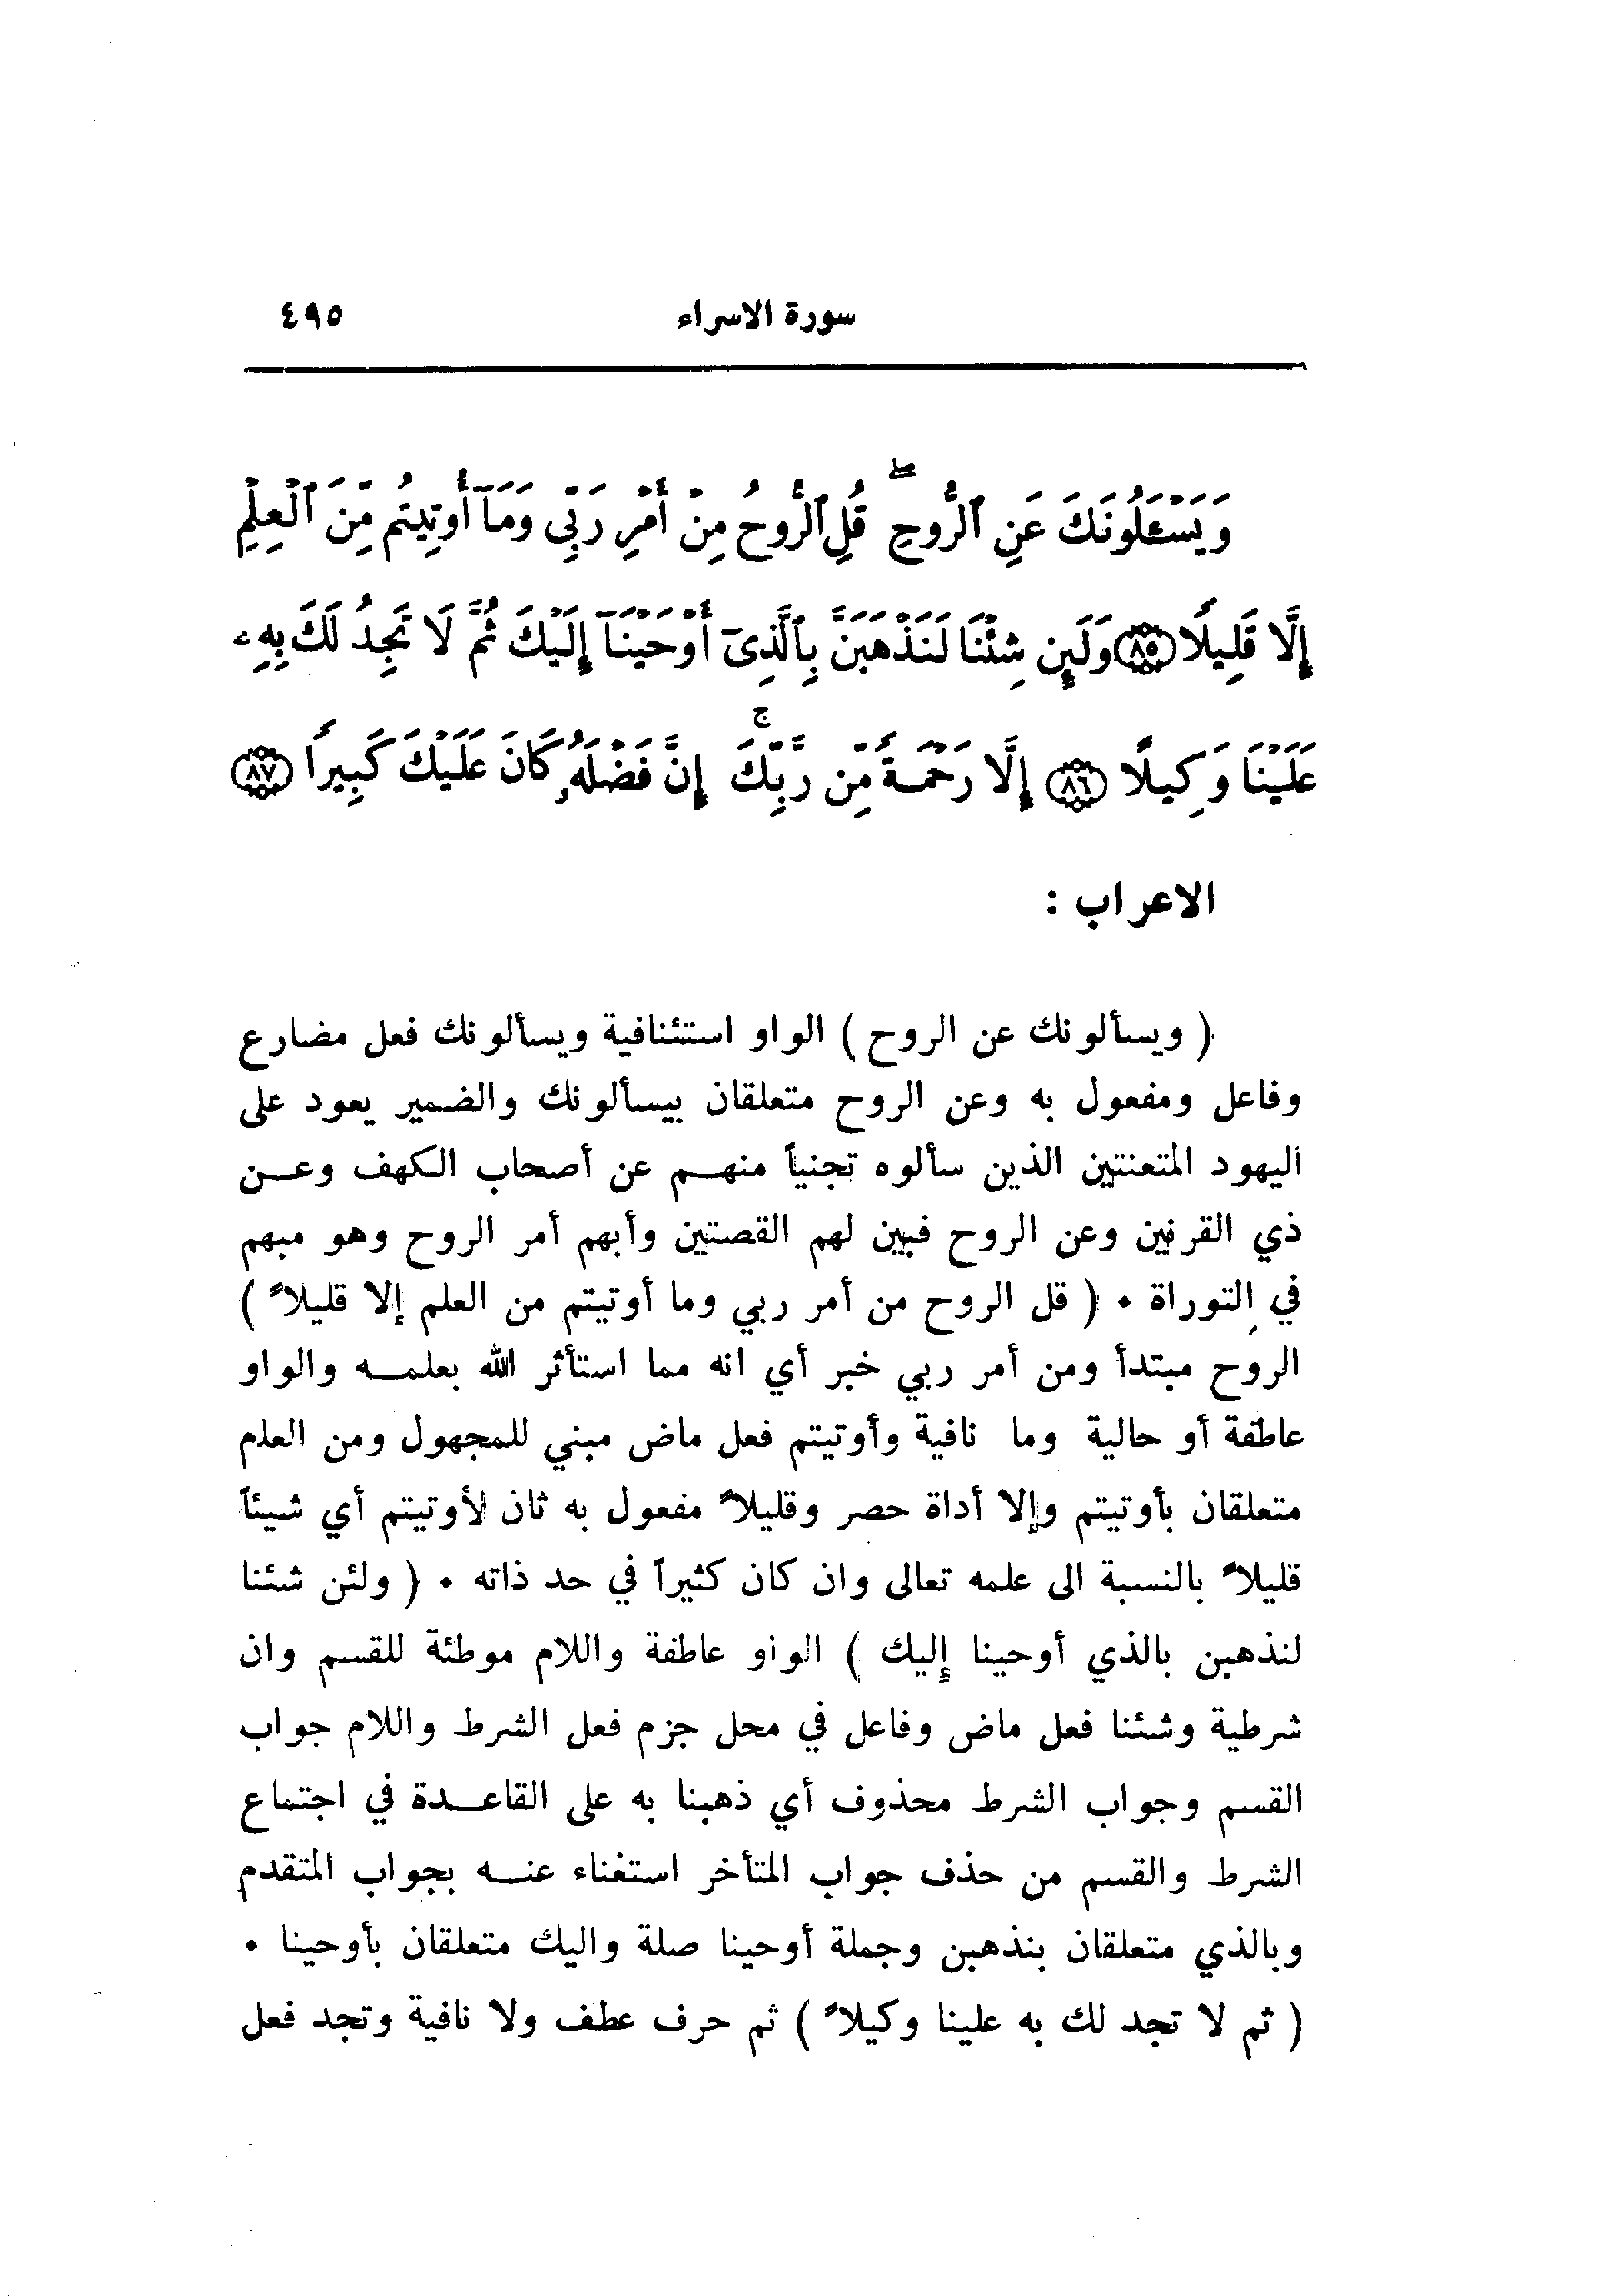 سورة الاسراء ٤٩٥
وَيَسْـَٔلُونَكَ عَنِ ٱلرُّوحِ ۖ قُلِ ٱلرُّوحُ مِنْ أَمْرِ رَبِّى وَمَآ أُوتِيتُم مِّنَ ٱلْعِلْمِ
إِلَّا قَلِيلًا ٨٥ وَلَئِن شِئْنَا لَنَذْهَبَنَّ بِٱلَّذِىٓ أَوْحَيْنَآ إِلَيْكَ ثُمَّ لَا تَجِدُ لَكَ بِهِۦ
عَلَيْنَا وَكِيلًا ٨٦ إِلَّا رَحْمَةً مِّن رَّبِّكَ ۚ إِنَّ فَضْلَهُۥ كَانَ عَلَيْكَ كَبِيرًا ٨٧
الاعراب :
( ويسألونك عن الروح ) الواو استئنافية ويسألونك فعل مضارع
وفاعل ومفعول به وعن الروح متعلقان بيسألونك والضمير يعود على
اليهود المتعنتين الذين سألوه تجنياً منهم عن أصحاب الكهف وعن
ذي القرنين وعن الروح فبين لهم القصتين وأبهم أمر الروح وهو مبهم
في التوراة . ( قل الروح من أمر ربي وما أوتيتم من العلم إلا قليلاً )
الروح مبتدأ ومن أمر ربي خبر أي انه مما استأثر الله بعلمه والواو
عاطفة أو حالية وما نافية وأوتيتم فعل ماض مبني للمجهول ومن العلم
متعلقان بأوتيتم وإلا أداة حصر وقليلاً مفعول به ثان لأوتيتم أي شيئاً
قليلاً بالنسبة الى علمه تعالى وان كان كثيراً في حد ذاته . ( ولئن شئنا
لنذهبن بالذي أوحينا إليك ) الواو عاطفة واللام موطئة للقسم وان
شرطية وشئنا فعل ماض وفاعل في محل جزم فعل الشرط واللام جواب
القسم وجواب الشرط محذوف أي ذهبنا به على القاعدة في اجتماع
الشرط والقسم من حذف جواب المتأخر استغناء عنه بجواب المتقدم
وبالذي متعلقان بنذهبن وجملة أوحينا صلة واليك متعلقان بأوحينا .
( ثم لا تجد لك به علينا وكيلاً ) ثم حرف عطف ولا نافية وتجد فعل